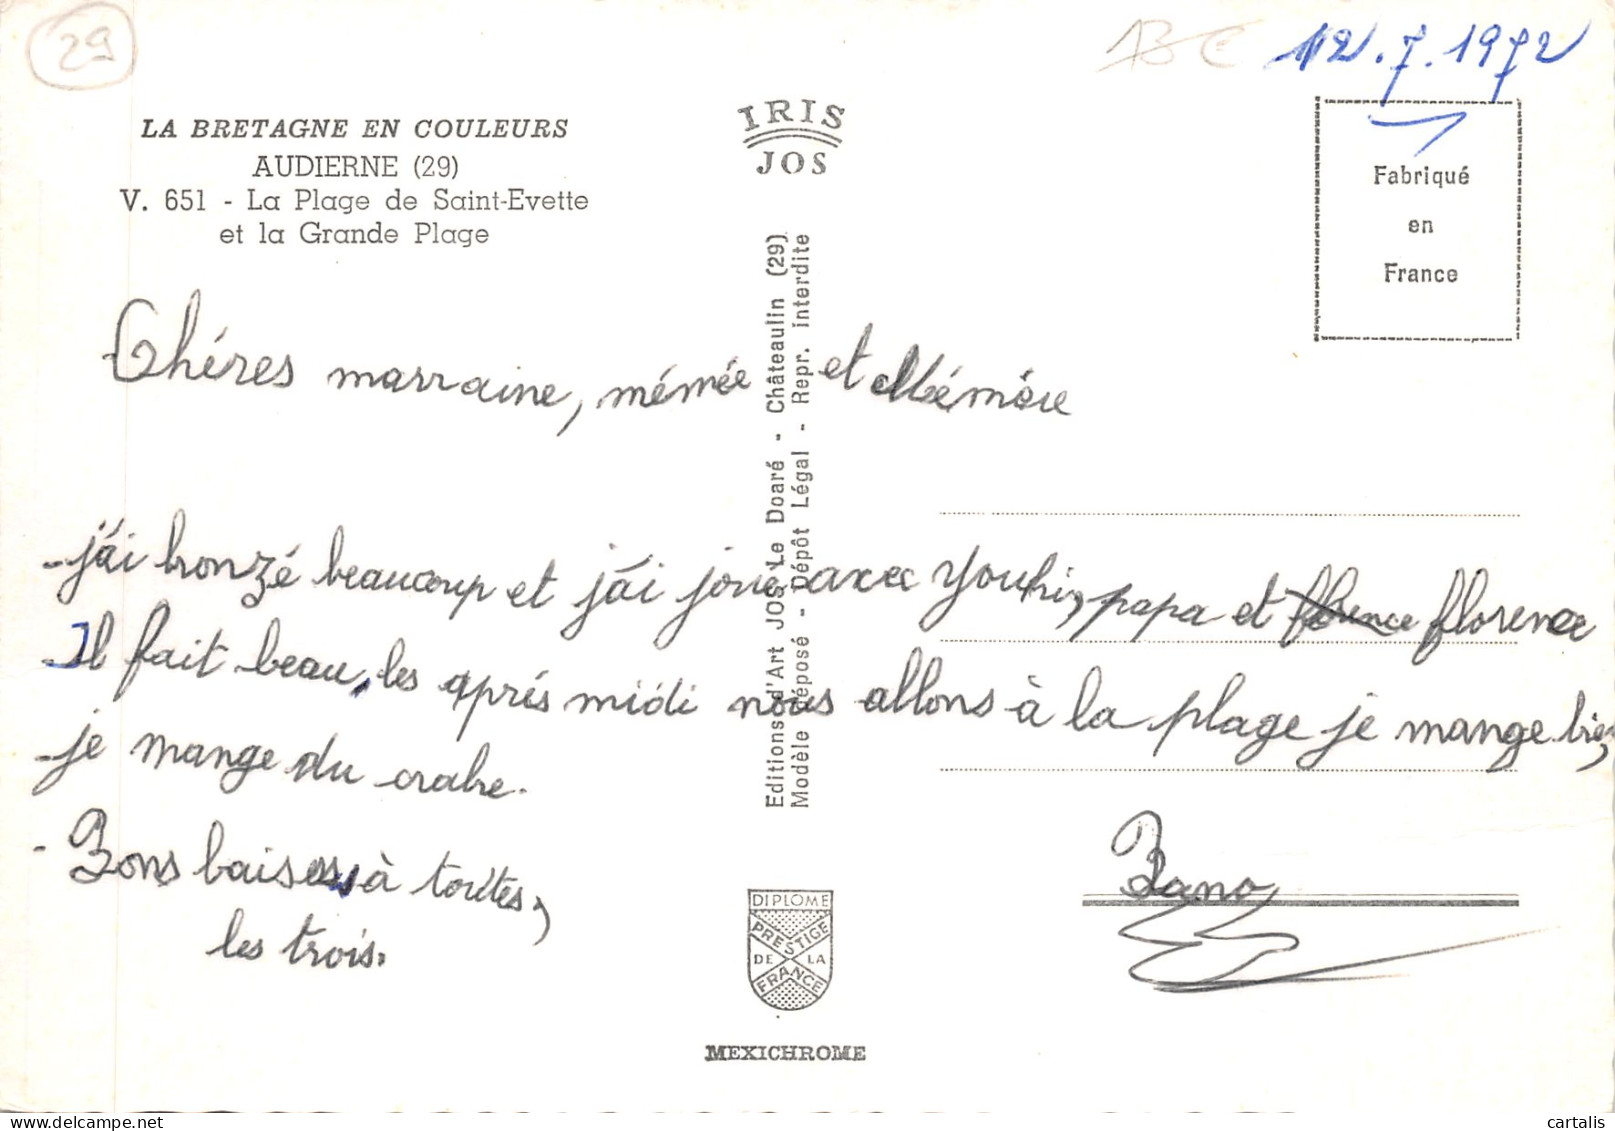 29
12.7.1972
LA BRETAGNE EN COULEURS
AUDIERNE (29)
V. 651 - La Plage de Saint-Evette
et la Grande Plage
IRIS
JOS
Fabriqué
en
France
Editions d'Art JOS Le Doaré - Châteaulin (29)
Modèle déposé - Dépôt Légal - Repr. interdite
Chéres marraine, mémée et Mémère
j'ai bronzé beaucoup et j'ai joué avec papa et florence florence
Il fait beau, les aprés midi nous allons à la plage je mange bien,
je mange du crabe.
Bons baisers à toutes,
les trois.
DIPLOME
PRESTIGE
DE LA
FRANCE
MEXICHROME
www.delcampe.net
cartalis